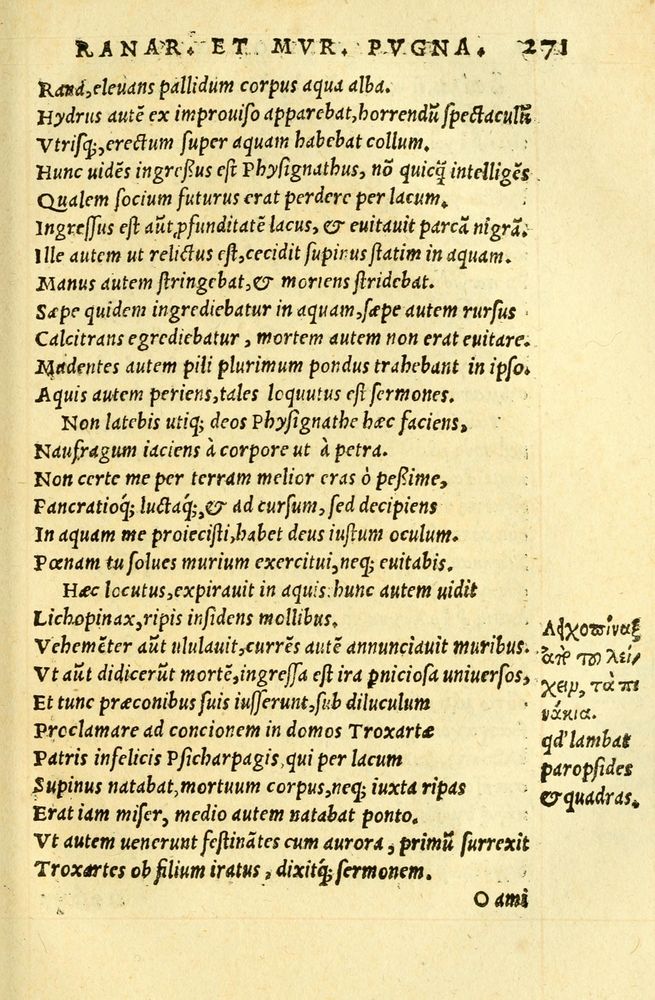 RANAR. ET MVR. PVGNA. 271
Rana, eleuans pallidum corpus aqua alba.
Hydrus autē ex improuiſo apparebat, horrendũ ſpectaculũ
Vtriſq;, erectum ſuper aquam habebat collum.
Hunc uidēs ingreſſus eſt Phyſignathus, nō quicq̃ intelligēs
Qualem ſocium futurus erat perdere per lacum.
Ingreſſus eſt aũt ꝓfunditatē lacus, & euitauit parcã nigrã.
Ille autem ut relictus eſt, cecidit ſupinus ſtatim in aquam.
Manus autem ſtringebat, & moriens ſtridebat.
Sæpe quidem ingrediebatur in aquam, ſæpe autem rurſus
Calcitrans egrediebatur, mortem autem non erat euitare.
Madentes autem pili plurimum pondus trahebant in ipſo.
Aquis autem periens, tales loquutus eſt ſermones.
Non latebis utiq; deos Phyſignathe hæc faciens,
Naufragum iaciens à corpore ut à petra.
Non certe me per terram melior eras ò peſſime,
Pancratioq́; luctaq́;, & ad curſum, ſed decipiens
In aquam me proieciſti, habet deus iuſtum oculum.
Pœnam tu ſolues murium exercitui, neq; euitabis.
Hæc locutus, expirauit in aquis: hunc autem uidit
Lichopinax, ripis inſidens mollibus.
Vehemēter aũt ululauit, currēs autē annunciauit muribus.
Vt aũt didicerũt mortē, ingreſſa eſt ira ꝑnicioſa uniuerſos,
Et tunc præconibus ſuis iuſſerunt, ſub diluculum
Proclamare ad concionem in domos Troxartæ
Patris infelicis Pſicharpagis, qui per lacum
Supinus natabat, mortuum corpus, neq; iuxta ripas
Erat iam miſer, medio autem natabat ponto.
Vt autem uenerunt feſtinātes cum aurora, primũ ſurrexit
Troxartes ob filium iratus, dixitq́; ſermonem.
O ami
Λειχοπίναξ
ἀπὸ τοῦ λεί
χειν, τὰ πι
νάκια.
qd' lambat
paropſides
& quadras.